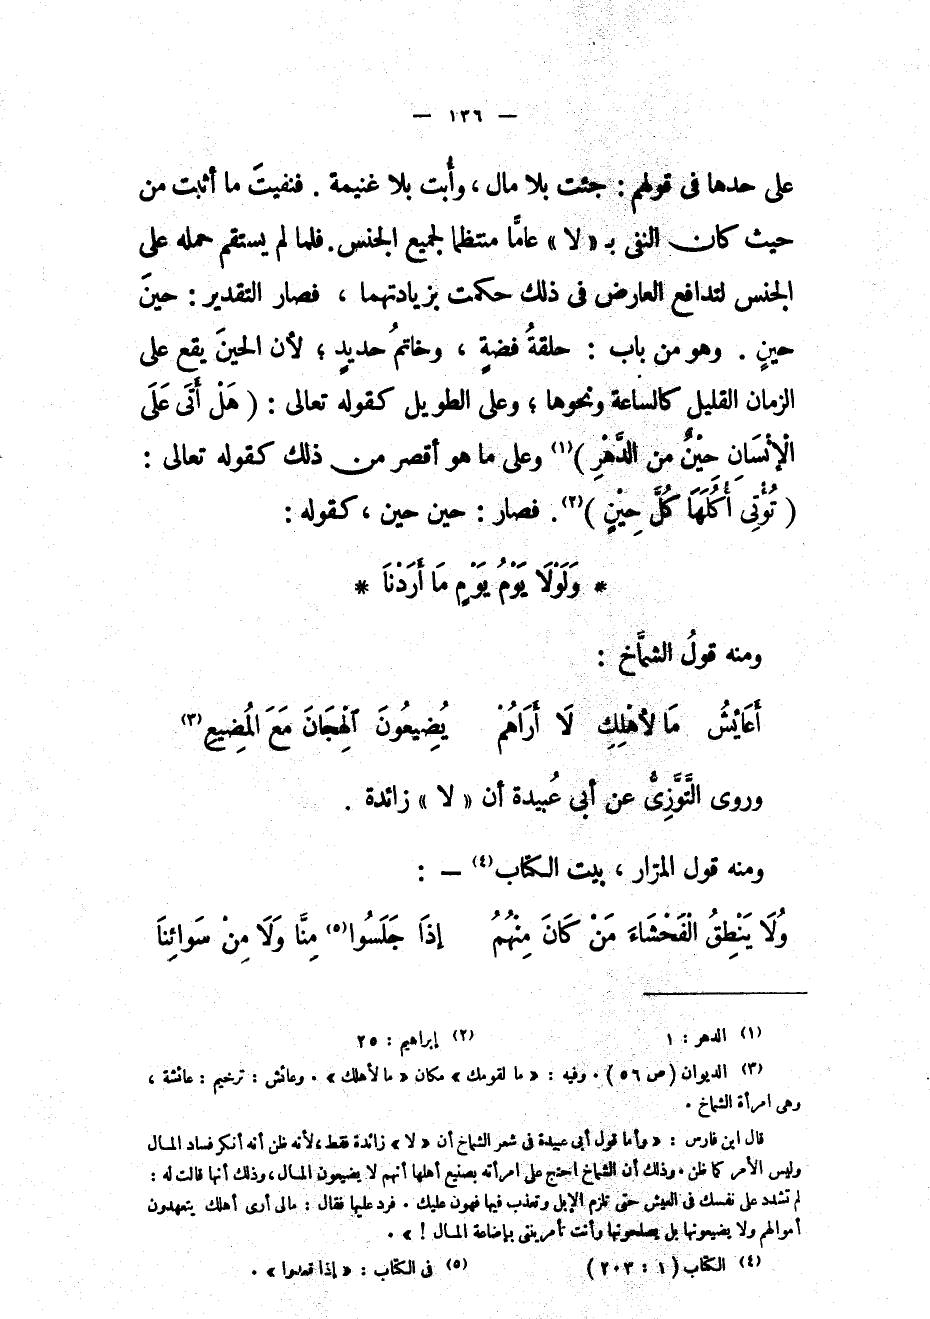 — ١٣٦ —
على حدها فى قولهم : جئت بلا مال ، وأُبت بلا غنيمة . فنفيتَ ما أثبت من
حيث كان النفى بـ « لا » عامًّا منتظما لجميع الجنس . فلما لم يستقم حمله على
الجنس لتدافع العارض فى ذلك حكمت بزيادتهما ، فصار التقدير : حينَ
حينٍ . وهو من باب : حلقةُ فضةٍ ، وخاتمُ حديدٍ ؛ لأن الحينَ يقع على
الزمان القليل كالساعة ونحوها ؛ وعلى الطويل كقوله تعالى : ( هَلْ أَتَى عَلَى
الْإنْسَانِ حِيْنٌ من الدَّهْرِ )(١) وعلى ما هو أقصر من ذلك كقوله تعالى :
( تُؤْتِى أُكُلَهَا كُلَّ حِيْنٍ )(٢) . فصار : حين حين ، كقوله :
* وَلَوْلَا يَوْمُ يَوْمٍ مَا أَرَدْنَا *
ومنه قولُ الشمَّاخ :
أَعَائِشُ مَا لأَهْلِكِ لَا أَرَاهُمْ يُضِيعُونَ الْهِجَانَ مَعَ الْمُضِيعِ(٣)
وروى التَّوَّزِىُّ عن أبى عُبيدة أن « لا » زائدة .
ومنه قول المرّار ، بيت الكتاب(٤) — :
وُلَا يَنْطِقُ الْفَحْشَاءَ مَنْ كَانَ مِنْهُمُ إذَا جَلَسُوا(٥) مِنَّا وَلَا مِنْ سَوائِنَا
(١) الدهر : ١ (٢) إبراهيم : ٢٥
(٣) الديوان ( ص ٥٦ ) . وفيه : « ما لقومك » مكان « ما لأهلك » . وعائش : ترخيم : عائشة ،
وهى امرأة الشماخ .
قال ابن فارس : « وأما قول أبى عبيدة فى شعر الشماخ أن « لا » زائدة فقط ، لأنه ظن أنه أنكر فساد المال
وليس الأمر كما ظن . وذلك أن الشماخ احتج على امرأته بصنيع أهلها أنهم لا يضيعون المال ، وذلك أنها قالت له :
لم تشدد على نفسك فى العيش حتى تلزم الإبل وتعذب فيها فهون عليك . فرد عليها فقال : مالى أرى أهلك يتعهدون
أموالهم ولا يضيعونها بل يصلحونها وأنت تأمريننى بإضاعة المال ! » .
(٤) الكتاب ( ١ : ٢٠٣ ) (٥) فى الكتاب : « إذا قعدوا » .